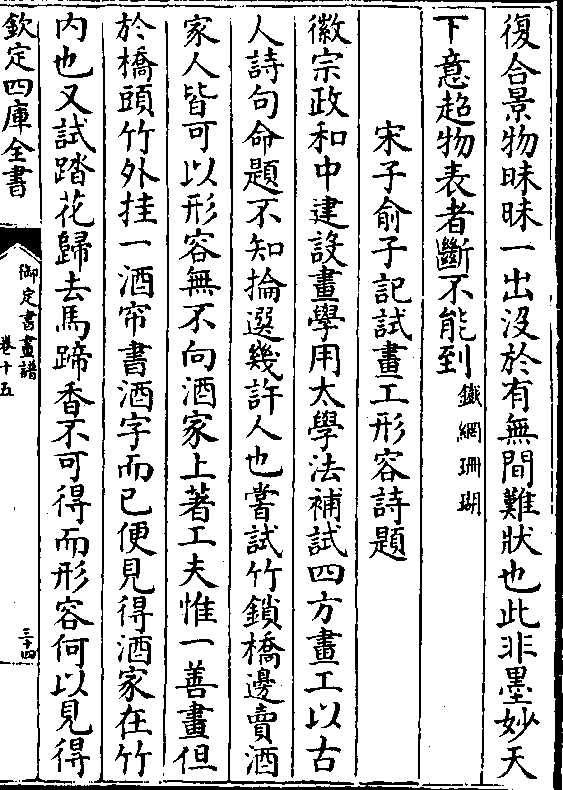 復合景物昧昧一出沒於有無間難狀也此非墨妙天
下意超物表者斷不能到鐵網珊瑚
宋子俞子記試畫工形容詩題
徽宗政和中建設畫學用太學法補試四方畫工以古
人詩句命題不知掄選幾許人也嘗試竹鎖橋邊賣酒
家人皆可以形容無不向酒家上著工夫惟一善畫但
於橋頭竹外挂一酒帘書酒字而已便見得酒家在竹
內也又試踏花歸去馬蹄香不可得而形容何以見得
欽定四庫全書
御定書畫譜
卷十五
三十四